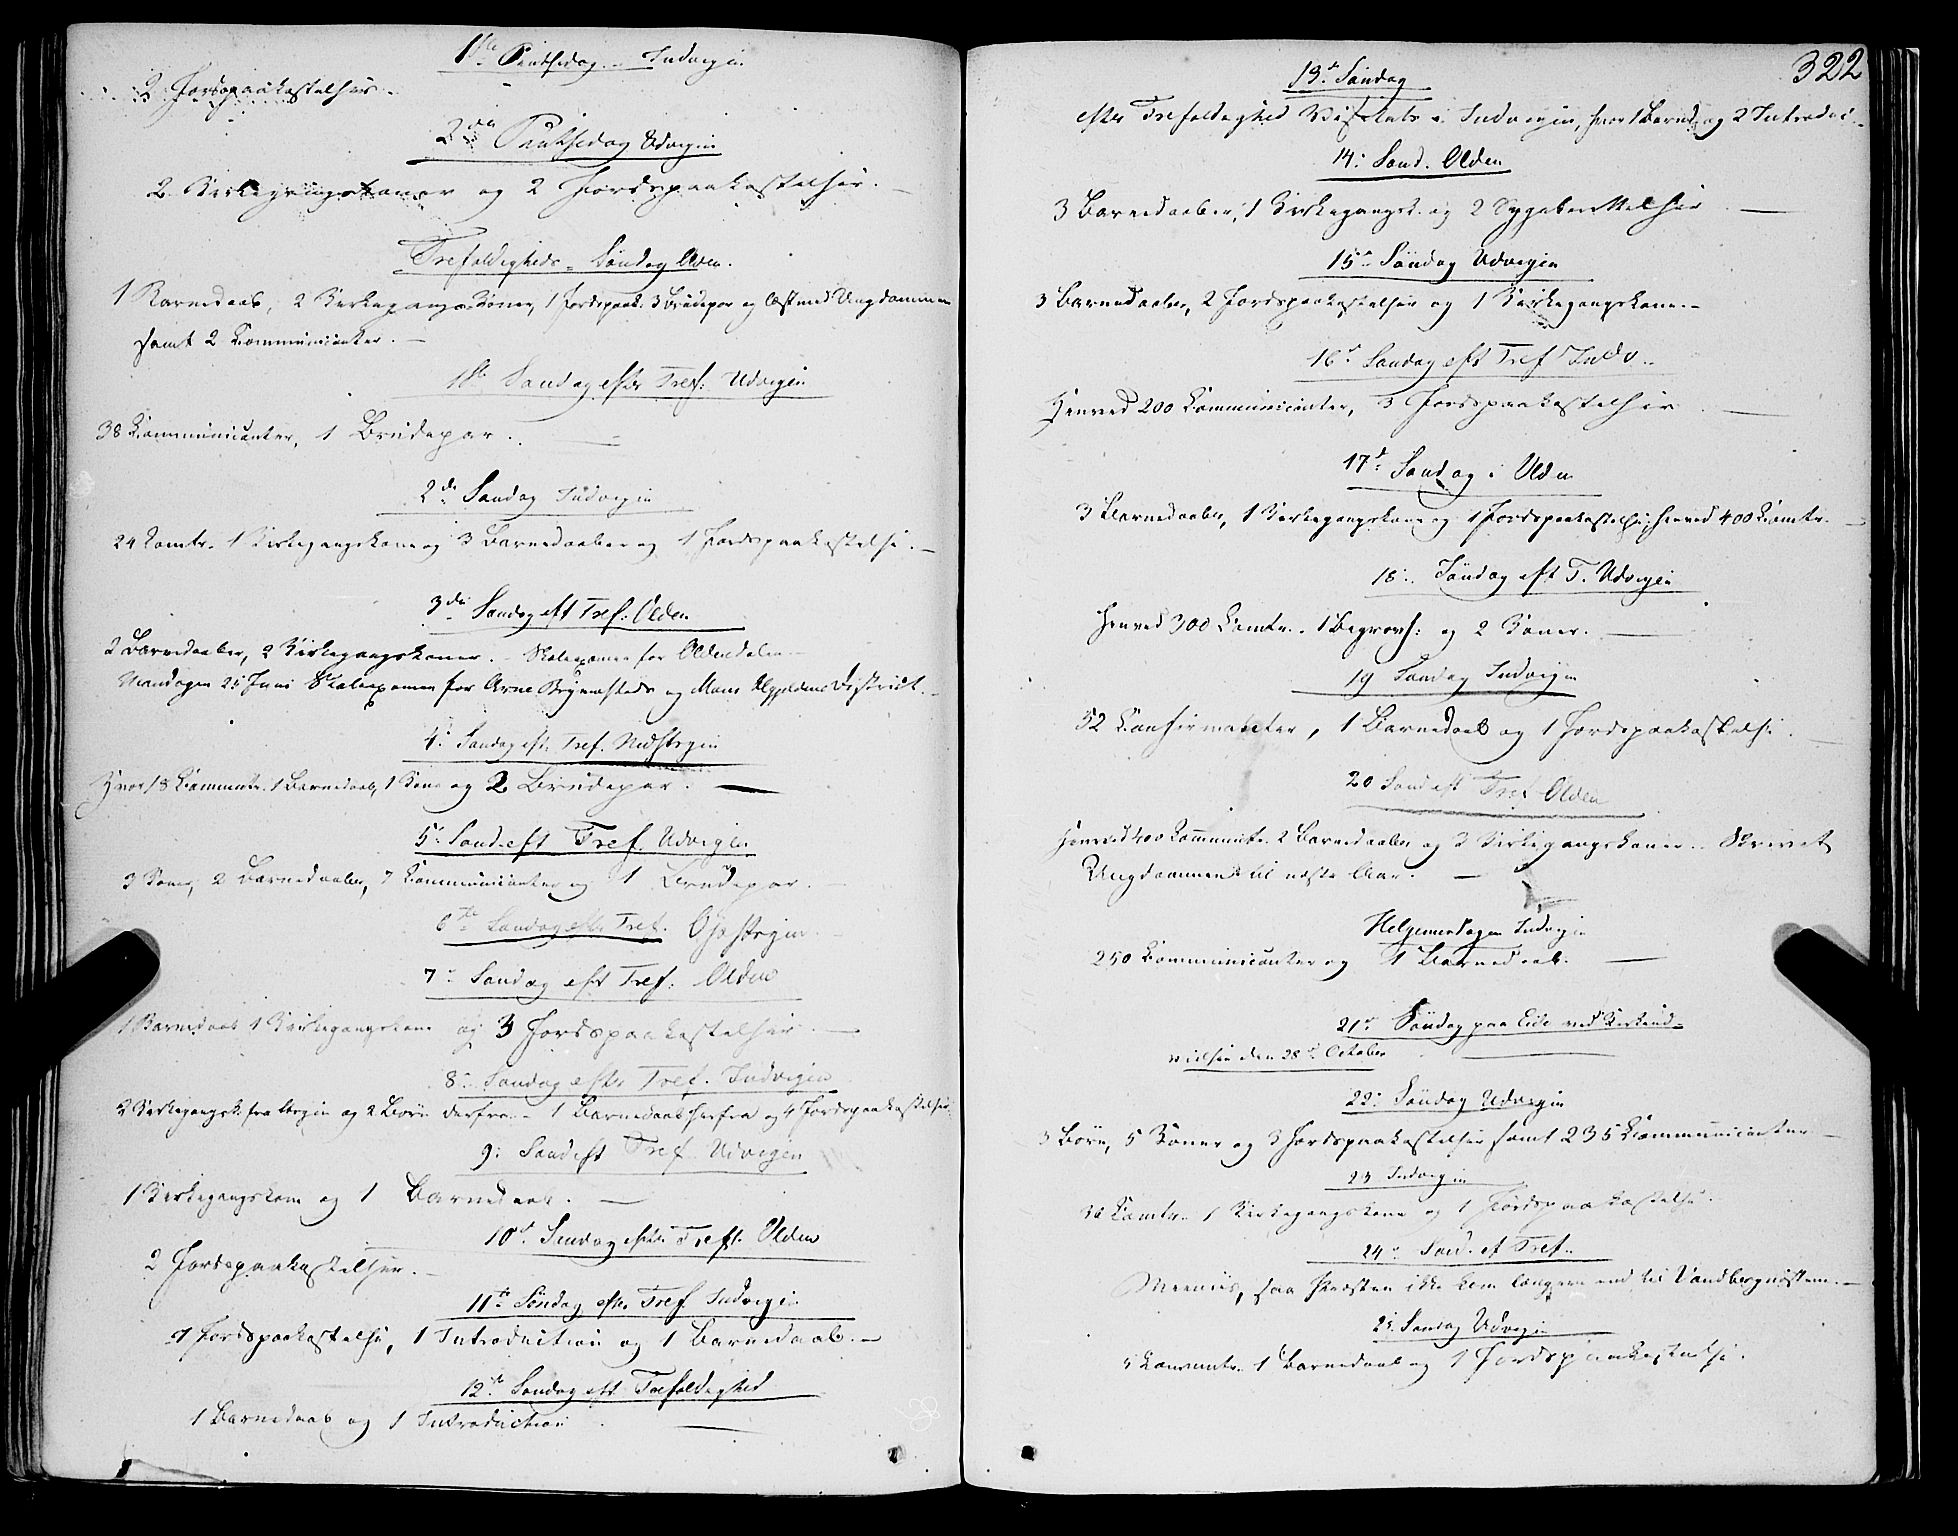 1ste Pintsedag - Indvigen
2 Jordspaakastelser.
2den Pintsedag Udvigen
2 Kirkegangskoner og 2 Jordspaakastelser.
Trefoldigheds-Søndag Olden.
1 Barnedaab, 2 Kirkegangskoner, 1 Jordspaak. 3 Brudepar og læst med Ungdommen
samt 2 Communicanter.
1ste Søndag efter Tref: Udvigen
38 Communicanter, 1 Brudepar.
2den Søndag Indvigen
24 Comtr. 1 Kirkegangskone og 3 Barnedaaber og 1 Jordspaakastelse.
3die Søndag eft Tref: Olden
2 Barnedaaber, 2 Kirkegangskoner. - Skoleexamen for Oldendalen.
Mandagen 25 Juni Skoleexamen for Arne og Mons District.
4: Søndag eft. Tref. Nedstryn
Hvor 18 Communtr. 1 Barnedaab, 1 Kone og 2 Brudepar.
5: Sønd. eft Tref. Udvigen
3 Koner, 2 Barnedaaber, 7 Communicanter og 1 Brudepar.
6te Søndag efter Tref. Opstryn.
7: Søndag eft Tref: Olden
1 Barnedaab 1 Kirkegangskone og 3 Jordspaakastelser.
8: Søndag efter Tref. Indvigen
2 Kirkegangsk. fra Stryn og 2 Børn derfra. - 1 Barnedaab herfra og 4 Jordspaakastelser.
9: Sønd eft Tref. Udvigen
1 Kirkegangskone og 1 Barnedaab.
10d. Søndag efter Tref. Olden
2 Jordspaakastelser.
11te Søndag efter Tref Indvigen
1 Jordspaakastelse, 1 Introduction og 1 Barnedaab.
12te Søndag eft Trefoldighed
1 Barnedaab og 1 Introduction
322
13d Søndag
efter Trefoldighed Visitats i Indvigen, hvor 1 Barned. og 2 Introduc.
14: Sønd. Olden
3 Barnedaaber, 1 Kirkegangsk. og 2 Sygeberettelser
15d Søndag Udvigen
3 Barnedaaber, 2 Jordspaakastelser og 1 Kirkegangskone.
16d Søndag eft Tref Indv.
Henved 200 Communicanter, 3 Jordspaakastelser
17d Søndag i Olden
3 Barnedaaber, 1 Kirkegangskone og 1 Jordspaakastelse, henved 400 Comtr.
18: Søndag eft T. Udvigen
Henved 300 Comtr. 1 Begravs: og 2 Koner.
19 Søndag Indvigen
52 Confirmanter, 1 Barnedaab og 1 Jordspaakastelse.
20 Sønd eft Tref Olden
Henved 400 Communtr. 2 Barnedaaber og 3 Kirkegangskoner. Skrevet
Ungdommen til næste Aar.
Helgemesdagen Indvigen
250 Communicanter og 1 Barnedaab.
21d Søndag paa Eide ved Kirkeind-
vielsen den 28d October
22: Søndag Udvigen
3 Børn, 5 Koner og 3 Jordspaakastelser samt 235 Communicanter
23 Indvigen
Comtr. 1 Kirkegangskone og 1 Jordspaakastelse.
24: Sønd. ef Tref.
saa Præsten ikke kom længere end til
25. Søndag Udvigen
5 Communtr. 1 Barnedaab og 1 Jordspaakastelse.